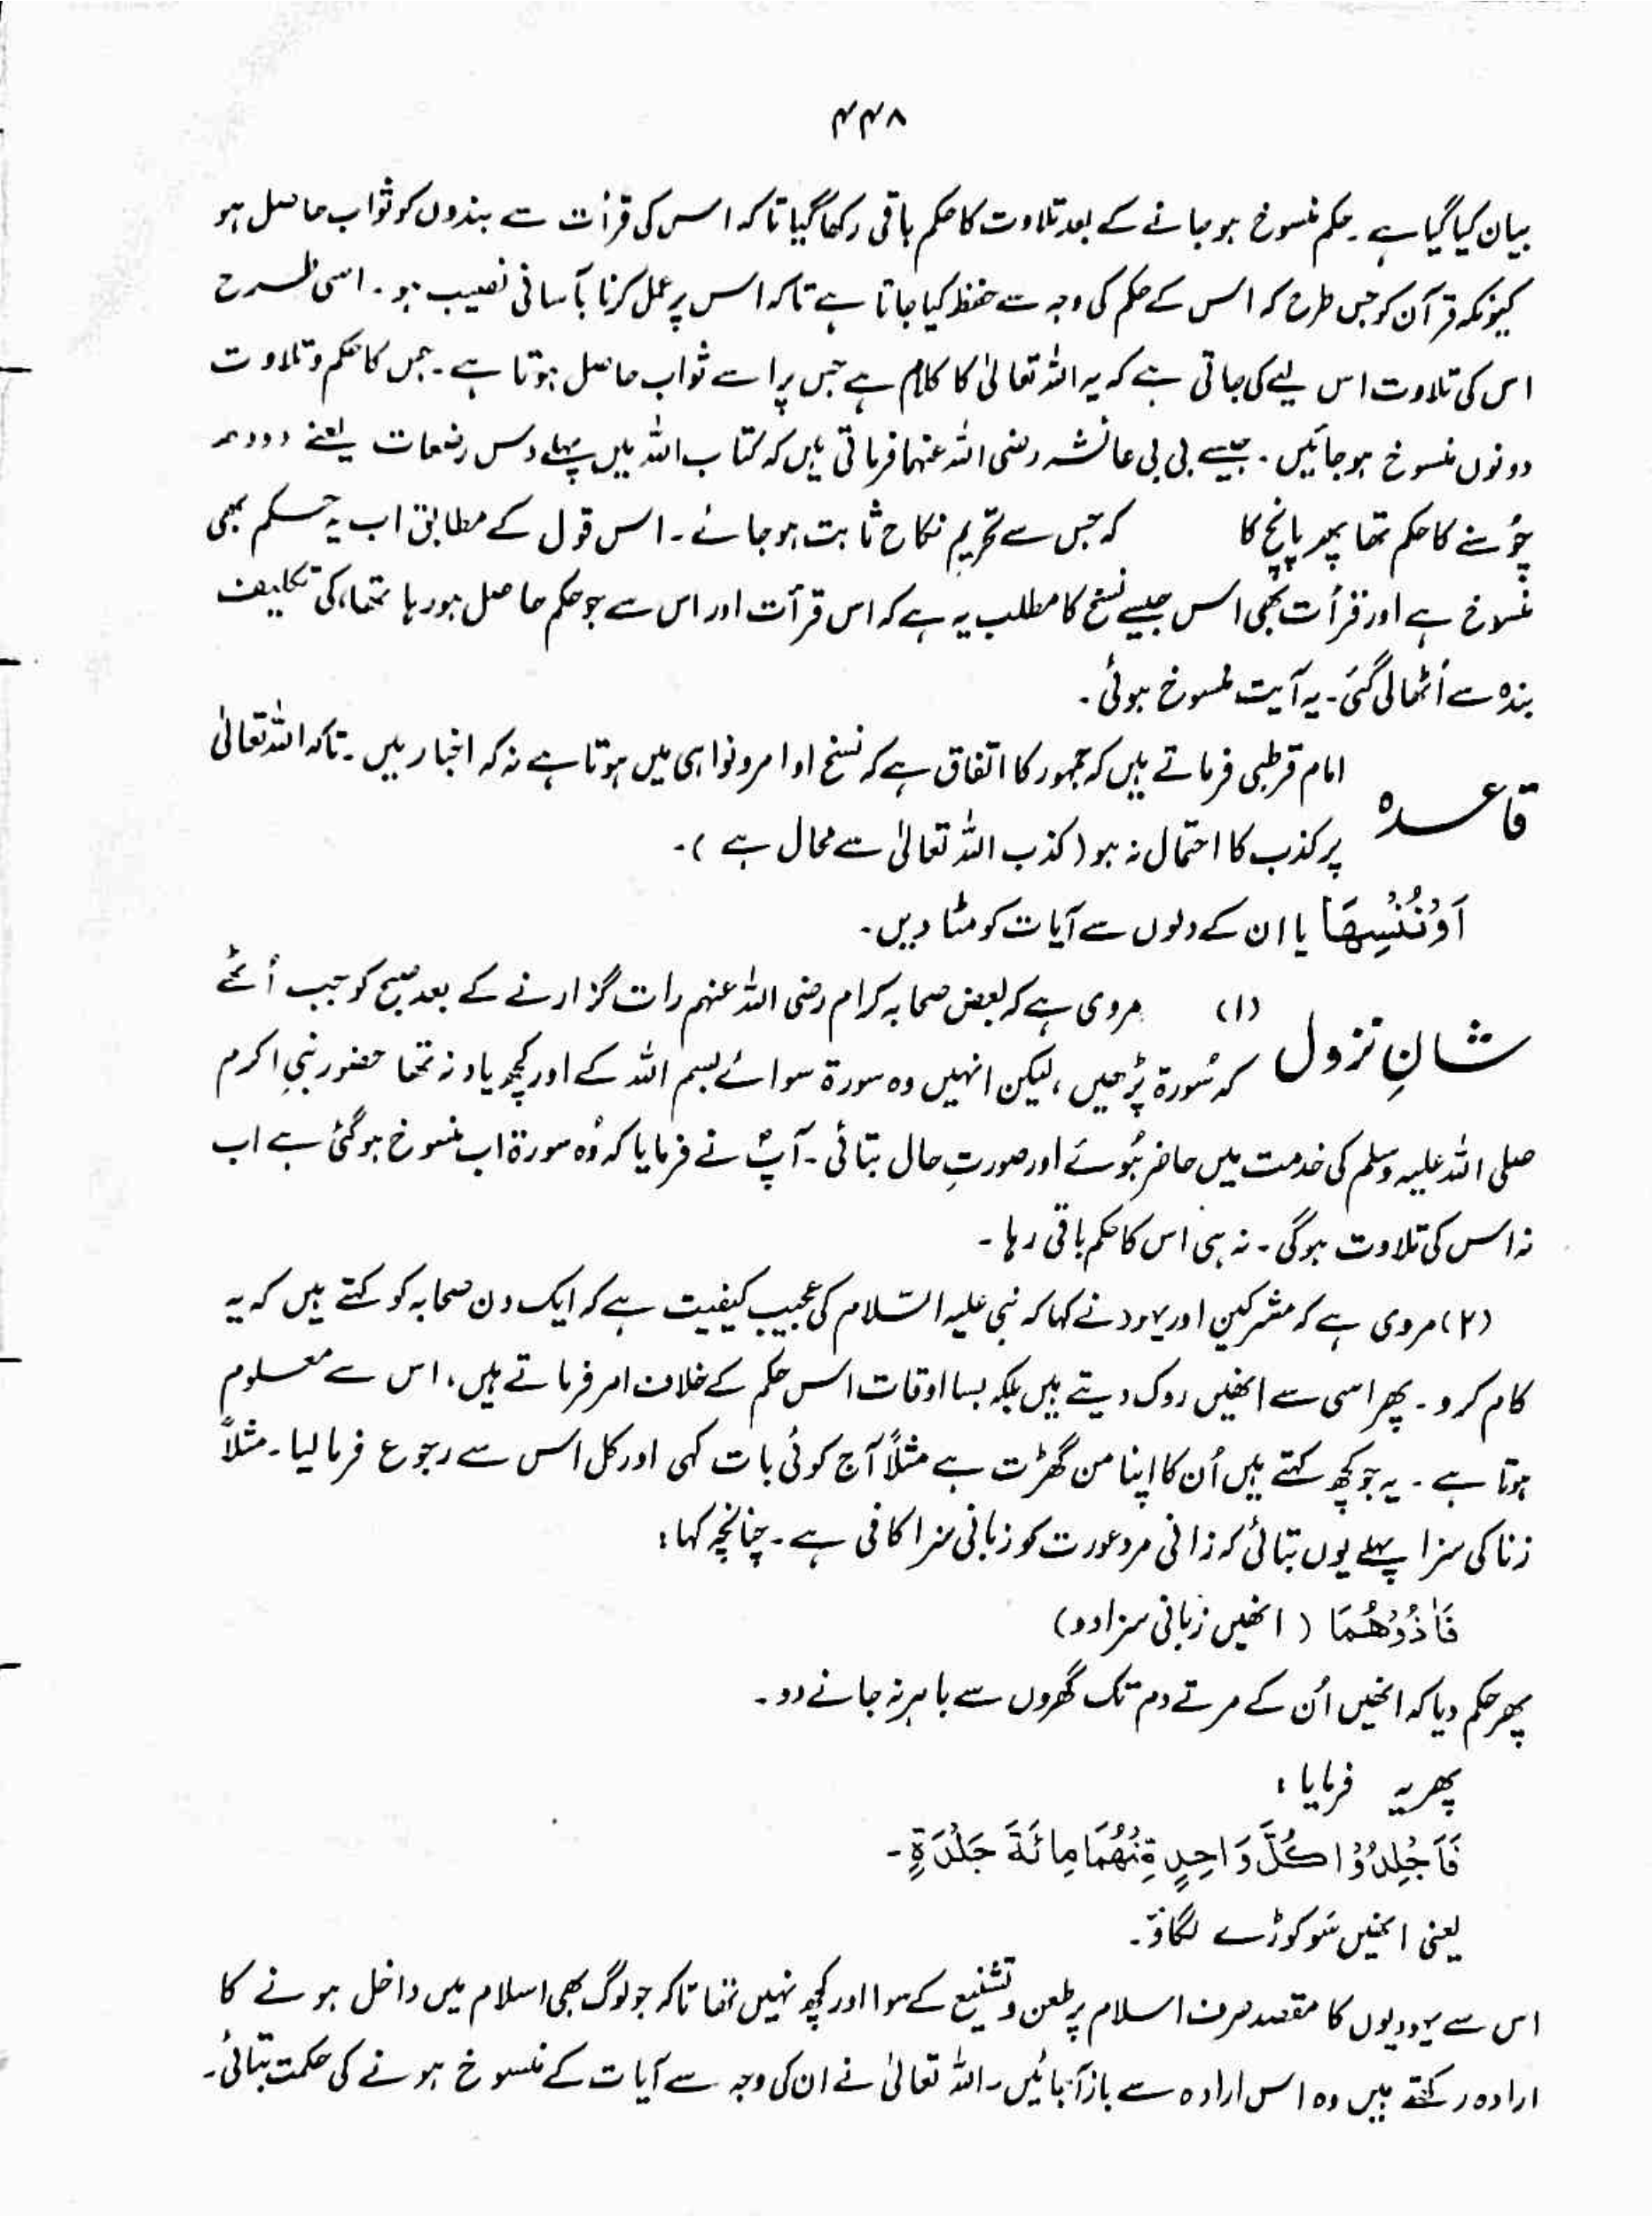 ۴۴۸
بیان کیا گیا ہے ۔ حکم منسوخ ہو جانے کے بعد تلاوت کا حکم باقی رکھا گیا تاکہ اس کی قرأت سے بندوں کو ثواب حاصل ہو
کیونکہ قرآن کو جس طرح کہ اس کے حکم کی وجہ سے حفظ کیا جاتا ہے تاکہ اس پر عمل کرنا بآسانی نصیب ہو ۔ اسی طرح
اس کی تلاوت اس لیے کی جاتی ہے کہ یہ اللہ تعالیٰ کا کلام ہے جس پر اسے ثواب حاصل ہوتا ہے ۔ جس کا حکم و تلاوت
دونوں منسوخ ہو جائیں ۔ جیسے بی بی عائشہ رضی اللہ عنہما فرماتی ہیں کہ کتاب اللہ میں پہلے دس رضعات یعنے دودھ
چُوسنے کا حکم تھا پھر پانچ کا کہ جس سے تحریم نکاح ثابت ہو جائے ۔ اس قول کے مطابق اب یہ حکم بھی
منسوخ ہے اور قرأت بھی اس جیسے نسخ کا مطلب یہ ہے کہ اس قرأت اور اس سے جو حکم حاصل ہو رہا تھا، کی تکلیف
بندہ سے اُٹھا لی گئی ۔ یہ آیت منسوخ ہوئی ۔
قاعدہ امام قرطبی فرماتے ہیں کہ جمہور کا اتفاق ہے کہ نسخ اوامر و نواہی میں ہوتا ہے نہ کہ اخبار میں ۔ تاکہ اللہ تعالیٰ
پر کذب کا احتمال نہ ہو ( کذب اللہ تعالیٰ سے محال ہے ) ۔
اَوْ نُنْسِهَا یا ان کے دلوں سے آیات کو مٹا دیں ۔
شانِ نزول (۱) مروی ہے کہ بعض صحابہ کرام رضی اللہ عنہم رات گزارنے کے بعد صبح کو جب اُٹھے
کہ سُورۃ پڑھیں ، لیکن انہیں وہ سورۃ سوائے بسم اللہ کے اور کچھ یاد نہ تھا حضور نبیِ اکرم
صلی اللہ علیہ وسلم کی خدمت میں حاضر ہُوئے اور صورتِ حال بتائی ۔ آپؐ نے فرمایا کہ وُہ سورۃ اب منسوخ ہو گئی ہے اب
نہ اس کی تلاوت ہوگی ۔ نہ ہی اس کا حکم باقی رہا ۔
(۲) مروی ہے کہ مشرکین اور یہود نے کہا کہ نبی علیہ السّلام کی عجیب کیفیت ہے کہ ایک دن صحابہ کو کہتے ہیں کہ یہ
کام کرو ۔ پھر اسی سے انھیں روک دیتے ہیں بلکہ بسا اوقات اس حکم کے خلاف امر فرماتے ہیں ، اس سے معلوم
ہوتا ہے ۔ یہ جو کچھ کہتے ہیں اُن کا اپنا من گھڑت ہے مثلاً آج کوئی بات کہی اور کل اس سے رجوع فرما لیا ۔ مثلاً
زنا کی سزا پہلے یوں بتائی کہ زانی مرد عورت کو زبانی سزا کافی ہے ۔ چنانچہ کہا :
فَاٰذُوْهُمَا ( انھیں زبانی سزا دو )
پھر حکم دیا کہ انھیں اُن کے مرتے دم تک گھروں سے باہر نہ جانے دو ۔
پھر یہ فرمایا :
فَاجْلِدُوْا كُلَّ وَاحِدٍ مِّنْهُمَا مِائَةَ جَلْدَةٍ ۔
یعنی انھیں سَو کوڑے لگاؤ ۔
اس سے یہودیوں کا مقصد صرف اسلام پر طعن و تشنیع کے سوا اور کچھ نہیں تھا تاکہ جو لوگ بھی اسلام میں داخل ہونے کا
ارادہ رکھتے ہیں وہ اس ارادہ سے باز آ جائیں ۔ اللہ تعالیٰ نے ان کی وجہ سے آیات کے منسوخ ہونے کی حکمت بتائی ۔